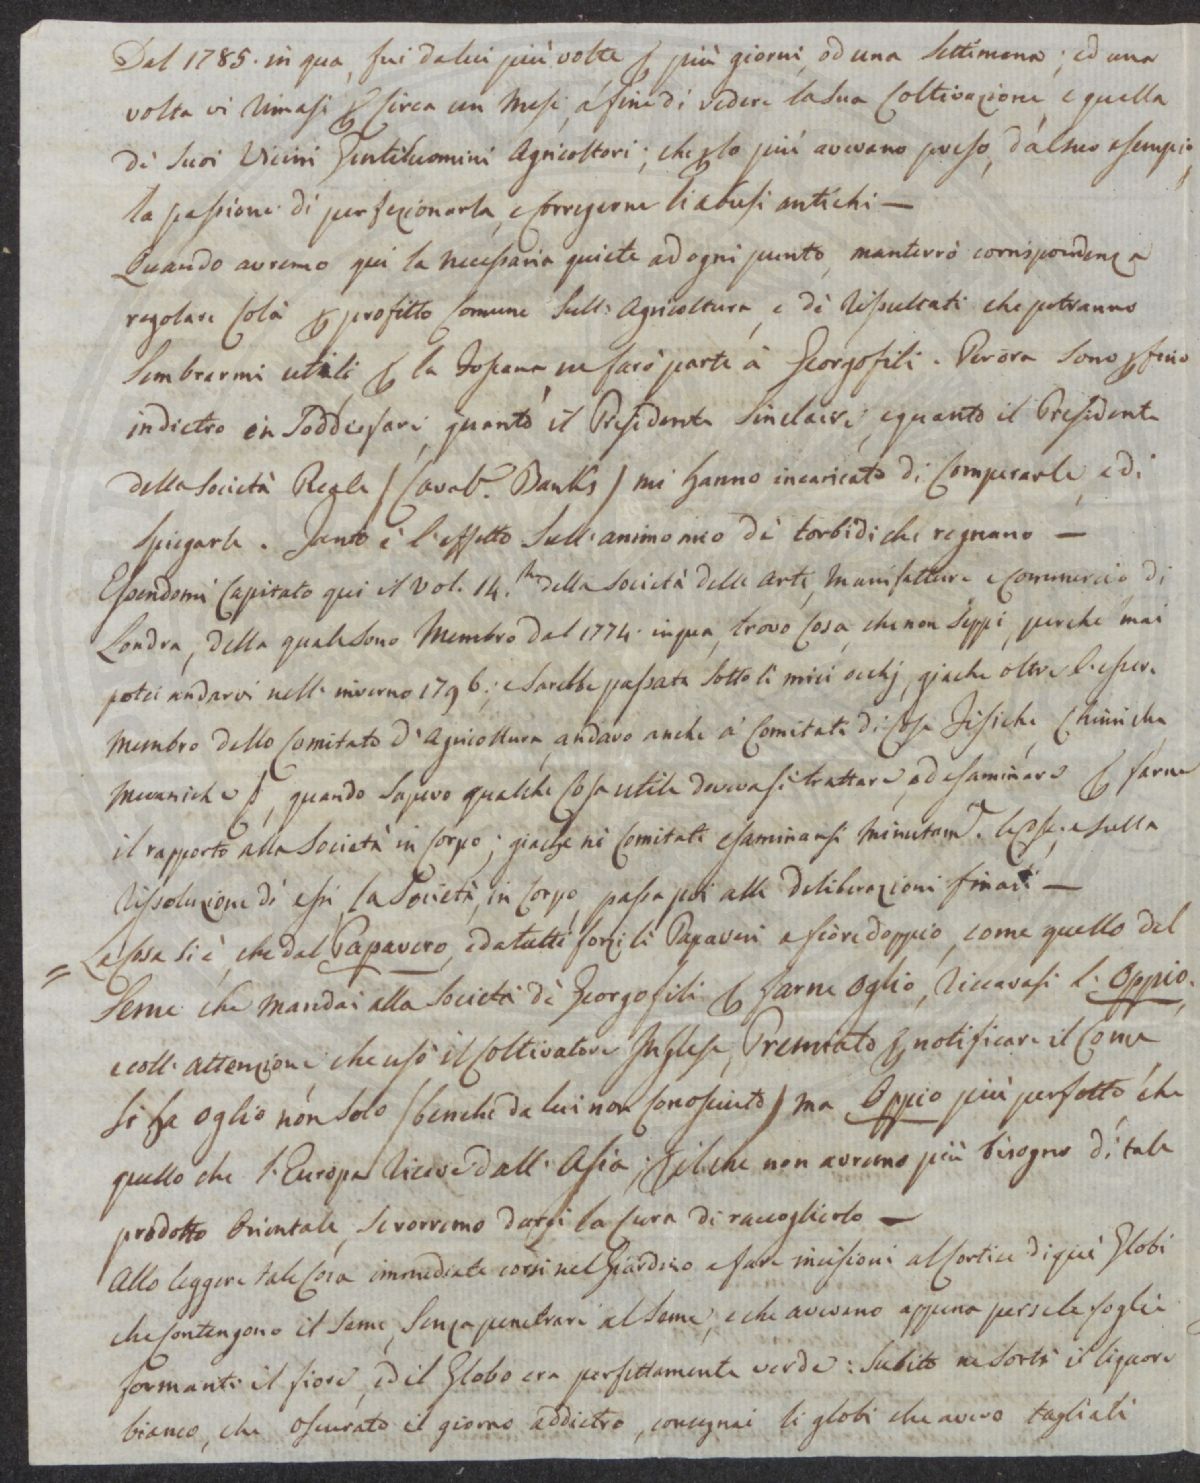 Dal 1785. in qua, fui da lui più volte ꝑ più giorni, od una Settimana; ed una
volta vi rimasi ꝑ circa un Mese, á fine di vedere la sua Coltivazione, e quella
dè suoi Vicini Gentiluomini Agricoltori; che ꝑ lo più avevano preso, dal suo esempio,
la passione di perfezionarla, e correggerne li abusi antichi —
Quando avremo qui la necessaria quiete ad ogni punto, manterrò corrispondenza
regolare colà ꝑ profitto comune sull' Agricoltura, e dè risultati che potranno
sembrarmi utili ꝑ la Toscana ne farò parte à Georgofili. Perora sono ꝑ fino
indietro in soddisfare, quanto il Presidente Sinclaire, e quanto il Presidente
della Società Reale (Caval.r Banks) mi hanno incaricato di comperarle, e di
spiegarle. Tanto è l'effetto sull'animo mio dè torbidi che regnano —
Essendomi capitato qui il Vol. 14.mo della Società delle Arti, Manifatture e Commercio di
Londra, della quale sono Membro dal 1774. in qua, trovo cosa, che non seppi, perchè mai
potei andarvi nell'inverno 1796.; e sarebbe passata sotto li miei occhj, giache oltre l'essere
Membro dello Comitato d'Agricoltura, andavo anche à Comitati di cose Fisiche, Chimiche,
Mecaniche &, quando sapevo qualche cosa utile dovevasi trattare, ed esaminare ꝑ farne
il rapporto alla Società in Corpo; giache nè Comitati esaminansi minutam.e le cose; e sulla
rissoluzione di essi, la Società, in Corpo, passa poi alle deliberazioni finali —
= La cosa si è, che dal Papavero, e da tutti forsi li Papaveri a fiore doppio, come quello del
seme che mandai alla Società dè Georgofili ꝑ farne Oglio, riccavasi l'Oppio,
e coll'attenzione che usò il Coltivatore Inglese, Premiato ꝑ notificare il come
si fa oglio non solo (benche da lui non conosciuto) ma Oppio più perfetto che
quello che l'Europa riceve dall'Asia; ꝑ il che non avremo più bisogno di tale
prodotto Orientale, se vorremo darsi la cura di raccoglierlo —
Allo leggere tale cosa immediate corsi nel Giardino a fare incisioni al cortice di quei Globi
che contengono il seme, senza penetrare al seme, e che avevano appena perse le foglie
formanti il fiore, ed il Globo era perfettamente verde: subito ne sortì il liquore
bianco, che oscurato il giorno addietro, consegnai li globi che avevo tagliati